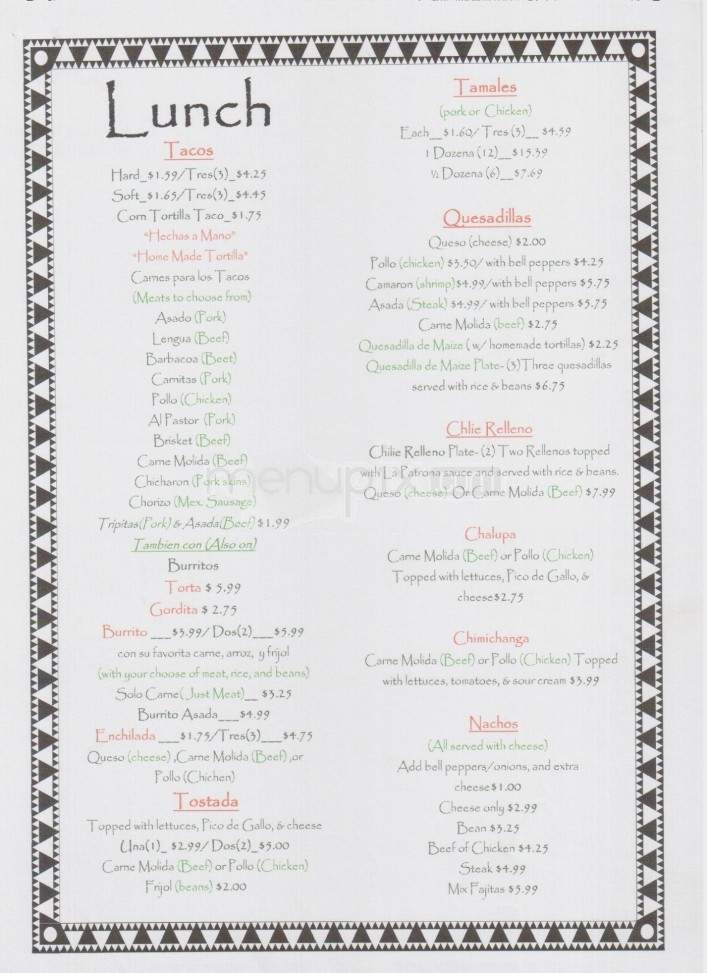 Lunch
Tacos
Hard_$1.59/Tres(3)_$4.25
Soft_$1.65/Tres(3)_$4.45
Corn Tortilla Taco_$1.75
"Hechas a Mano"
"Home Made Tortilla"
Carnes para los Tacos
(Meats to choose from)
Asado (Pork)
Lengua (Beef)
Barbacoa (Beet)
Carnitas (Pork)
Pollo (Chicken)
Al Pastor (Pork)
Brisket (Beef)
Carne Molida (Beef)
Chicharon (Pork skins)
Chorizo (Mex. Sausage)
Tripitas(Pork) & Asada(Beef) $1.99
Tambien con (Also on)
Burritos
Torta $ 5.99
Gordita $ 2.75
Burrito ___$3.99/ Dos(2)___$5.99
con su favorita carne, arroz, y frijol
(with your choose of meat, rice, and beans)
Solo Carne( Just Meat)__ $3.25
Burrito Asada___$4.99
Enchilada ___$1.75/Tres(3)___$4.75
Queso (cheese) ,Carne Molida (Beef) ,or
Pollo (Chichen)
Tostada
Topped with lettuces, Pico de Gallo, & cheese
Una(1)_ $2.99/ Dos(2)_$5.00
Carne Molida (Beef) or Pollo (Chicken)
Frijol (beans) $2.00
Tamales
(pork or Chicken)
Each__$1.60/ Tres (3)__ $4.59
1 Dozena (12)__$15.39
½ Dozena (6)__$7.69
Quesadillas
Queso (cheese) $2.00
Pollo (chicken) $3.50/ with bell peppers $4.25
Camaron (shrimp)$4.99/with bell peppers $5.75
Asada (Steak) $4.99/ with bell peppers $5.75
Carne Molida (beef) $2.75
Quesadilla de Maize ( w/ homemade tortillas) $2.25
Quesadilla de Maize Plate- (3) Three quesadillas
served with rice & beans $6.75
Chlie Relleno
Chilie Relleno Plate- (2) Two Rellenos topped
with La Patrona sauce and served with rice & beans.
Queso (cheese) Or Carne Molida (Beef) $7.99
Chalupa
Carne Molida (Beef) or Pollo (Chicken)
Topped with lettuces, Pico de Gallo, &
cheese$2.75
Chimichanga
Carne Molida (Beef) or Pollo (Chicken) Topped
with lettuces, tomatoes, & sour cream $3.99
Nachos
(All served with cheese)
Add bell peppers/onions, and extra
cheese$1.00
Cheese only $2.99
Bean $3.25
Beef of Chicken $4.25
Steak $4.99
Mix Fajitas $5.99
menupix